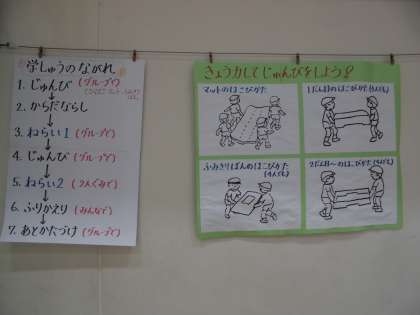 学しゅうのながれ
1. じゅんび (グループで)
2. からだならし
3. ねらい1 (グループで)
4. じゅんび (グループで)
5. ねらい2 (2人ぐみで)
6. ふりかえり (みんなで)
7. あとかたづけ (グループで)
きょう力してじゅんびをしよう!
マットのはこびかた
1だん目のはこびかた(4人ども)
ふみきりばんのはこびかた
2だん目〜のはこびかた